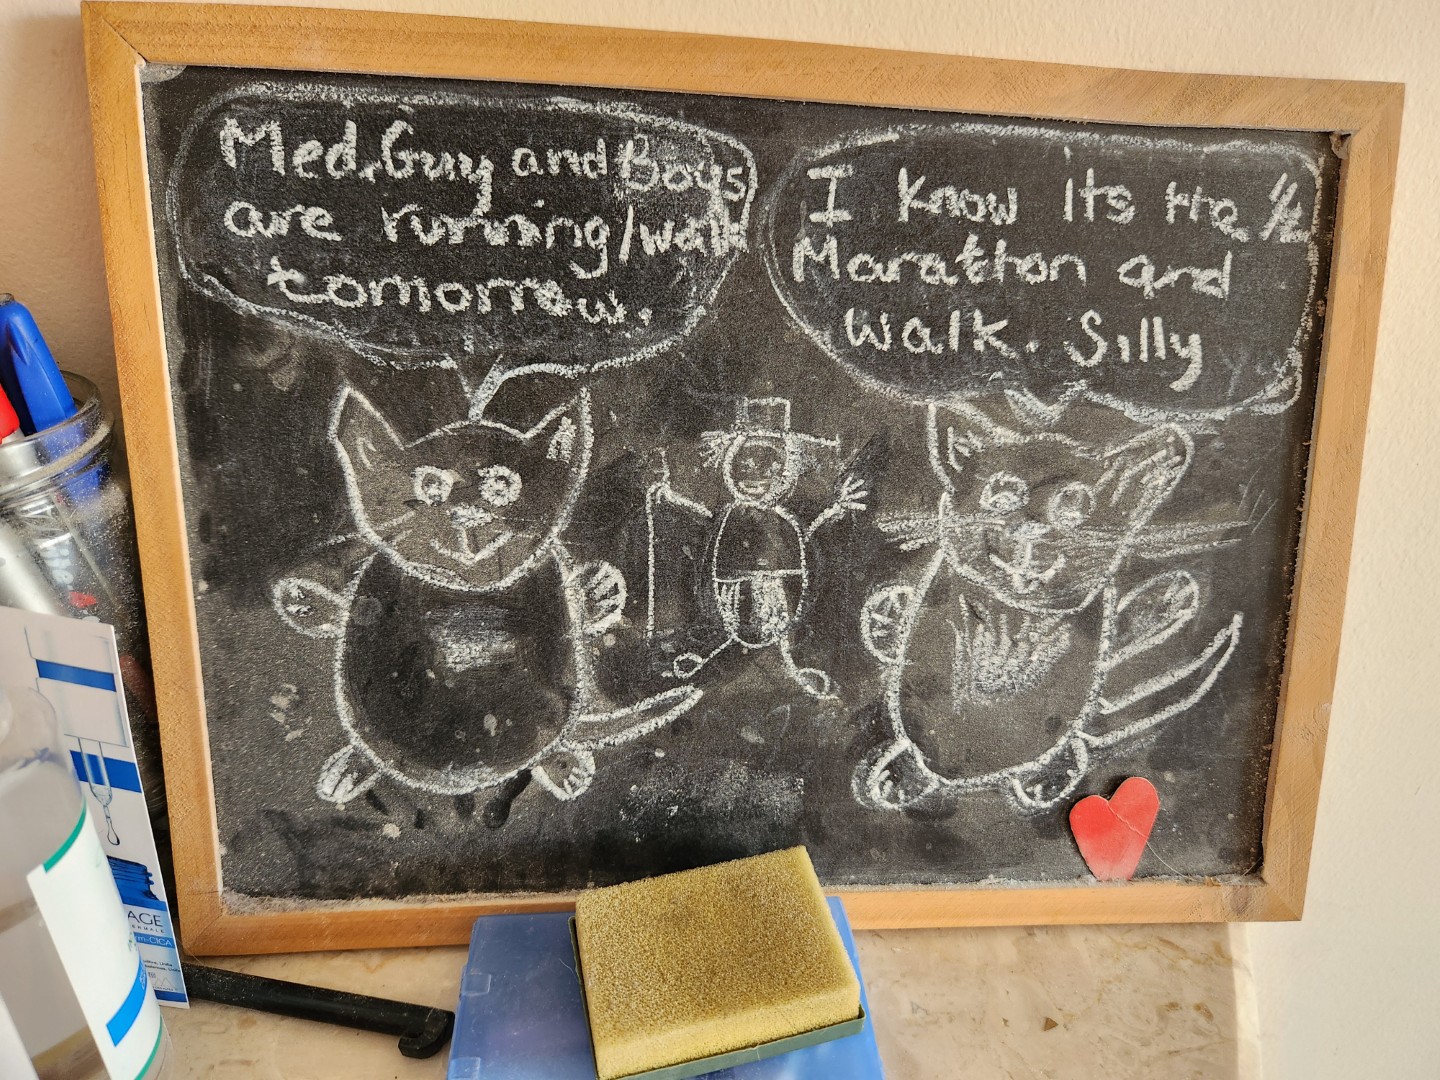 Med, Guy and Boys
are running/walk
tomorrow.
I know Its the 1/2
Marathon and
walk. Silly
AGE
m-CICA